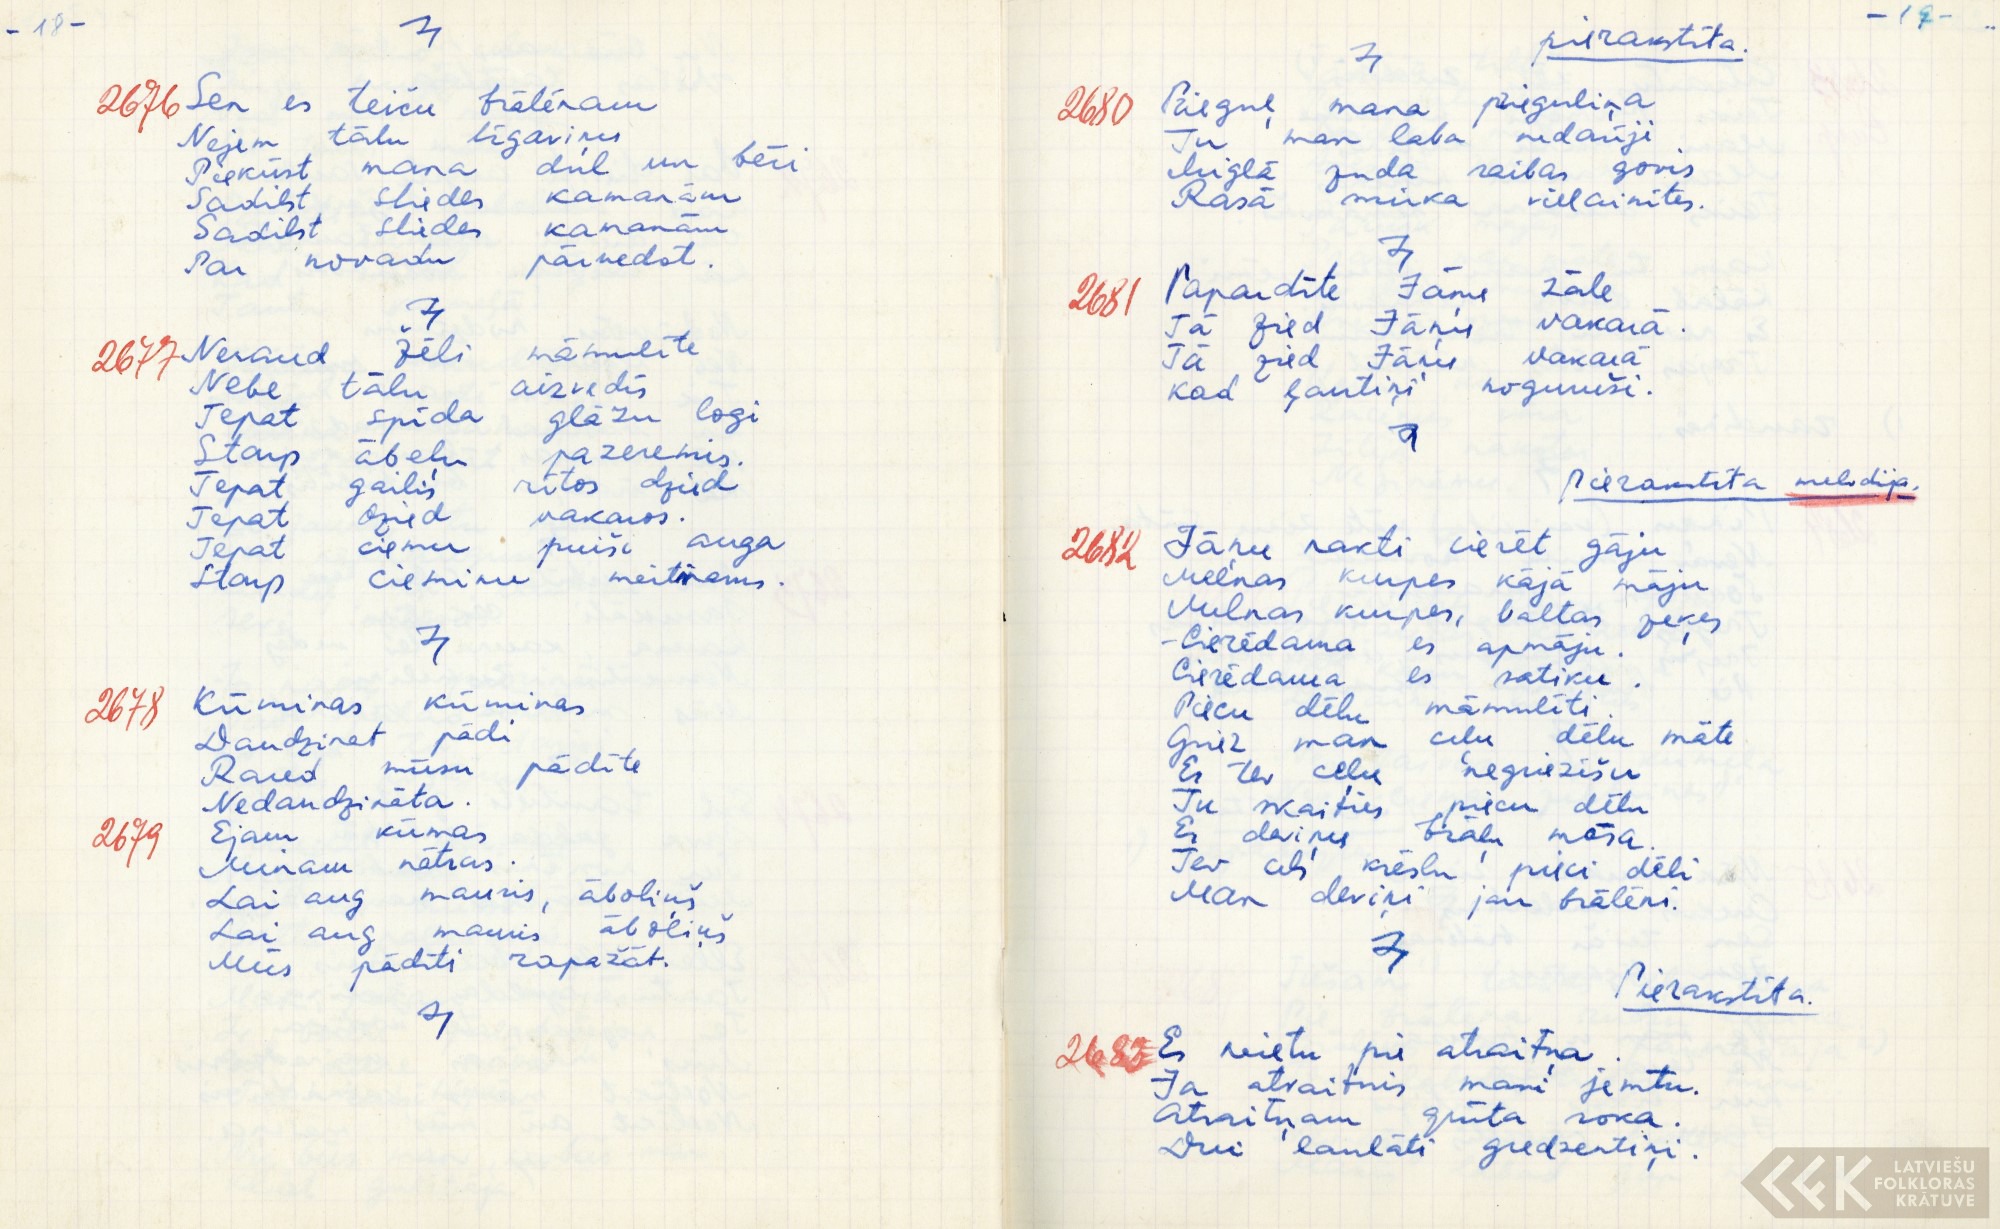 - 18 -
2676 Sen es teicu brālēnam
Nejem tālu līgaviņus
Piekūst mana dūl un bēri
Sadilst sliedes kamanām
Sadilst sliedes kamanām
Par novadu pārvedot.
2677 Neraud žēli māmulīte
Nebe tālu aizvedīs
Tepat spīda glāžu logi
Starp ābeļu pazeremis.
Tepat gailis rītos dzied
Tepat dzied vakaros.
Tepat ciemu puiši auga
Starp ciemiņu meitiņams.
2678 Kūminas kūminas
Daudzinat pādi
Raud mūsu pādīte
Nedaudzināta.
2679 Ejam kūmas
Minam nātras.
Lai aug mauris, āboliņš
Lai aug mauris āboliņš
Mūs pādīti rapažāt.
- 19 -
pierakstīta.
2680 Pieguļ mana pieguliņa
Tu man laba nedarīji
Miglā zuda raibas govis
Rasā mirka villainītes.
2681 Papardīte Jāņu zāle
Tā zied Jāņu vakarā.
Tā zied Jāņu vakarā
Kad ļautiņi noguruši.
Pierakstīta melodija.
2682 Jāņu nakti cierēt gāju
Melnas kurpes kājā māju
Melnas kurpes, baltas zeķes
- Cierēdama es apmāju.
Cierēdama es satiku.
Piecu dēlu māmulīti.
Griez man ceļu dēlu māte
Es tev ceļu negriezīšu
Tu skaities piecu dēlu
Es deviņu brāļu māsa.
Tev cels krēslu pieci dēli
Man deviņi jau brālēni.
Pierakstīta.
2683 Es neietu pie atraitņa.
Ja atraitnis mani jemtu.
Atraitņam grūta roka.
Divi laulāti gredzentiņi.
LATVIEŠU
FOLKLORAS
KRĀTUVE